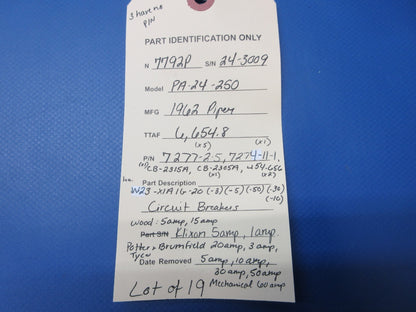 3 have no
P/N
PART IDENTIFICATION ONLY
N 7792P S/N 24-3009
Model PA-24-250
MFG 1962 Piper
TTAF 6,654.8
(x5) (x1)
P/N 7277-2-5, 7274-11-1,
CB-2315A, CB-2305A, 454-656
(x1) (x2)
Part Description
W23-X1A1G-20 (-3) (-5) (-50) (-30)
(-10)
Circuit Breakers
Wood: 5amp, 15amp
Part S/N Klixon 5amp, 1amp
Potter & Brumfield 20amp, 3amp,
Tyco
Date Removed 5amp, 10amp,
30amp, 50amp
Lot of 19 Mechanical 60amp